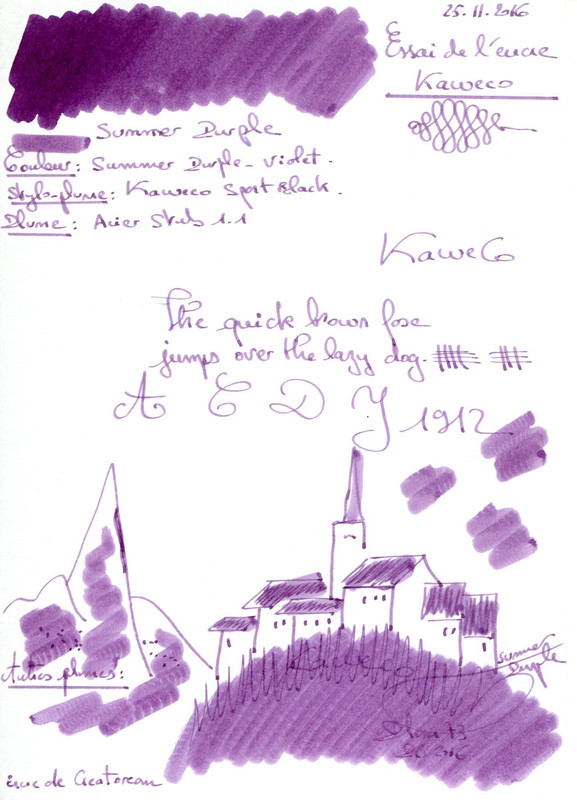 25.11.2016
Essai de l'encre
Kaweco
Summer Purple
Couleur: Summer Purple - Violet.
Stylo-plume: Kaweco Sport Black.
Plume: Acier Stub 1.1
KaweCo
The quick brown foxe
jumps over the lazy dog.
A C D J 1912
Autres plumes:
Kaweco
Summer
Purple
2016
Encre de Creatorean